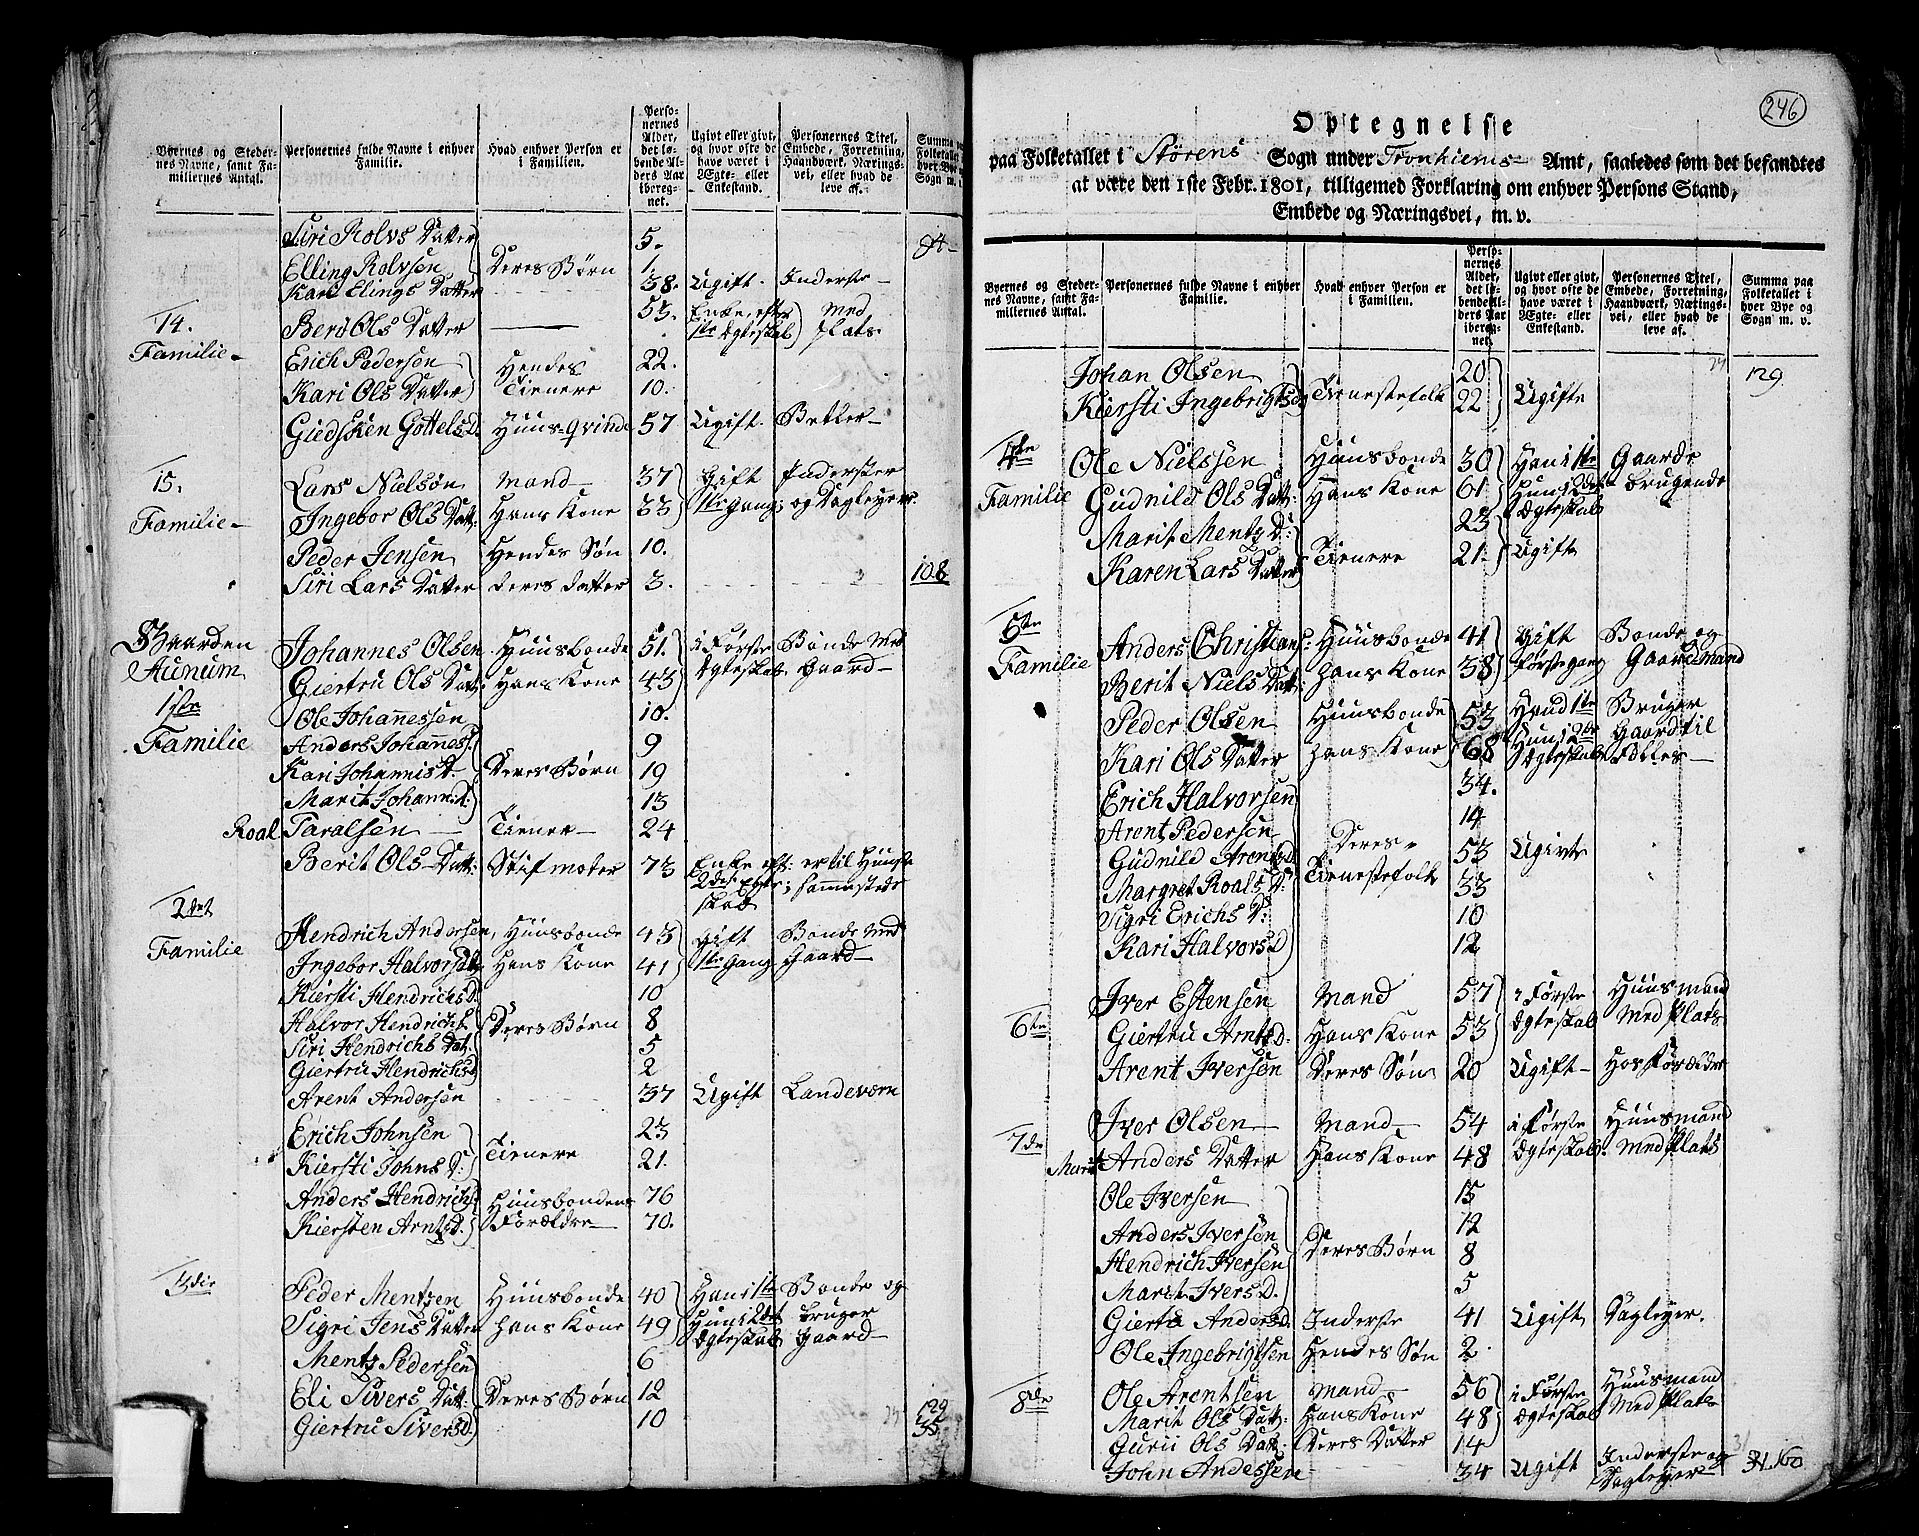 Byernes og Steder-
nes Navne, samt Fa-
miliernes Antal.
Personernes fulde Navne i enhver
Familie.
Hvad enhver Person er
i Familien.
Perso-
nernes
Alder,
det lø-
bende Al-
ders Aar
ibereg-
net.
Ugivt eller givt,
og hvor ofte de
have været i
Ægte- eller
Enkestand.
Personernes Titel,
Embede, Forretning,
Haandværk, Nærings-
vei, eller hvad de
leve af.
Siri Rolvs Datter 5. 84
Elling Rolvsen Deres Børn 1
Kari Elings Datter 38. Ugift Inderste
14. Familie Berit Ols Datter 53. Enke, efter 1ste Ægteskab Med Plats
Erich Pedersen Hendes 22.
Kari Ols Datter Tienere 10.
Giedsken Gottels D. Huus-qvinde 57 Ugift. Betler
15. Familie Lars Nielsøn Mand 37 Gift Inderster
Ingebor Ols Datt: Hans Kone 33 1ste gang; og Dagleyere
Peder Jensen Hendes Søn 10.
Siri Lars Datter deres datter 3. 108
Gaarden Aunum
1ste Familie
Johannes Olsen Huusbonde 51. i Første Bonde Med
Giertru Ols Datt: Hans Kone 43 Ægteskab Gaard
Ole Johannessen 10.
Anders Johanness. 9
Kari Johannis D. Deres Børn 19
Marit Johann: D: 13
Roal Taralsen Tiener 24
Berit Ols Datt: Stifmoder 73 Enke eft: er til Huuse
2det Egte; sammesteds
skab
2det Familie
Hendrich Andersen, Huusbonde 43 Gift Bonde Med
Ingebor Halvorsdtr Hans Kone 41 1ste Gang Gaard
Kiersti Hendrichs D. 10
Halvor Hendrichs. Deres Børn 8
Siri Hendrichs Dat. 5
Giertru Hendrichs D 2
Arent Andersøn 37 Ugift Landeværn
Erich Johnsen 23
Kiersti Johns D: Tienere 21.
Anders Hendrichs. Huusbondens 76
Kiersten Arnts D. Forældre 70.
3die
Peder Mentzen Huusbonde 40 Han i 1te Bonde og
Sigri Jens Datter Hans Kone 49 Hun i 2det bruger
Ægteskab Gaard
Mentz Pedersen 6
Eli Sivers Datt: Deres Børn 12
Giertru Sivers D. 10 129
246
Optegnelse
paa Folketallet i Størens Sogn under Tronhiems Amt, saaledes som det befandtes
at være den 1ste Febr. 1801, tilligemed Forklaring om enhver Persons Stand,
Embede og Næringsvei, m. v.
Byernes og Steder-
nes Navne, samt Fa-
miliernes Antal.
Personernes fulde Navne i enhver
Familie.
Hvad enhver Person er
i Familien.
Perso-
nernes
Alder,
det lø-
bende Al-
ders Aar
ibereg-
net.
Ugivt eller givt,
og hvor ofte de
have været i
Ægte- eller
Enkestand.
Personernes Titel,
Embede, Forretning,
Haandværk, Nærings-
vei, eller hvad de
leve af.
Summa paa
Folketallet i
hver Bye og
Sogn m. v.
Johan Olsen 20 129
Kiersti Ingebrigts D Tienestefolk 22 Ugifte
4de Familie
Ole Nielssen Huusbonde 30 Han i 1te Gaard
Gudnild Ols Datt: Hans Kone 61 Hun i 2det brugende
Ægteskab
Marit Mentz D: 23
Karen Lars Datter Tienere 21. Ugift
5te Familie
Anders Christians: Huusbonde 41 Gift Bonde og
Berit Niels Datt: Hans Kone 38 første gang Gaardmand
Peder Olsen Huusbonde 53 Han i 1te Bruger
Kari Ols Datter Hans Kone 68 Hun i 2det Gaard til
Ægteskab
Erich Halvorsen 34.
Arent Pedersen 14
Gudnild Arents D Deres 53 Ugivte
Margret Roals D: Tienestefolk 33
Sigri Erichs D: 10
Kari Halvors D 12
6te
Iver Estensen Mand 57 i Første Huusmand
Giertru Arnts D. Hans Kone 53 Ægteskab Med Plats
Arent Iversen Deres Søn 20 Ugift Hos Forældre
7de
Iver Olsen Mand 54 i Første Huusmand
Marit Anders Datter Hans Kone 48 Ægteskab Med Plats
Ole Iversen 15
Anders Iversen 12
Hendrich Iversen Deres Børn 8
Marit Ivers D. 5
Giertru Anders D. Inderste 41 Ugift Dagleyer.
Ole Ingebrigtsen Hendes Søn 2.
8de
Ole Arentsen Mand 56 i Første Huusmand
Marit Ols Datt: Hans Kone 48 Ægteskab Med Plats
Gurii Ols Datt: Deres Datter 14
John Andessen 34 Ugift Inderste og Dagleyer 31. 160